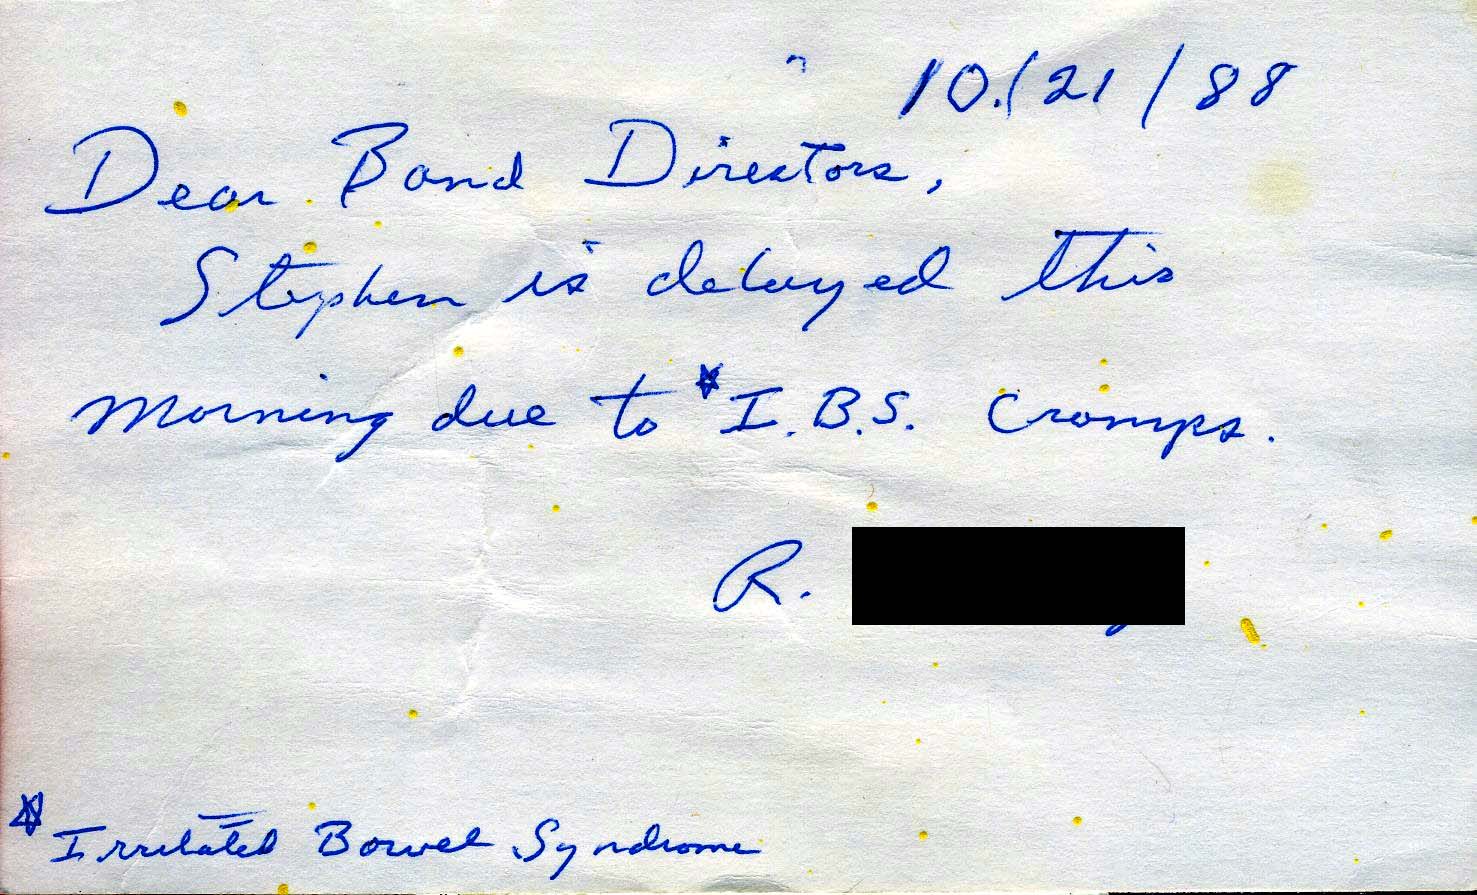 10/21/88
Dear Band Directors,
Stephen is delayed this
morning due to *I.B.S. cramps.
R.
* Irritated Bowel Syndrome